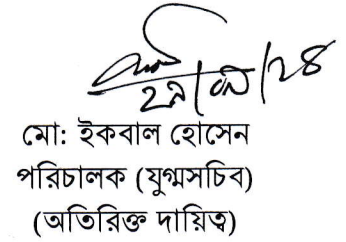 ২৯/০৯/২৪
মো: ইকবাল হোসেন
পরিচালক (যুগ্মসচিব)
(অতিরিক্ত দায়িত্ব)